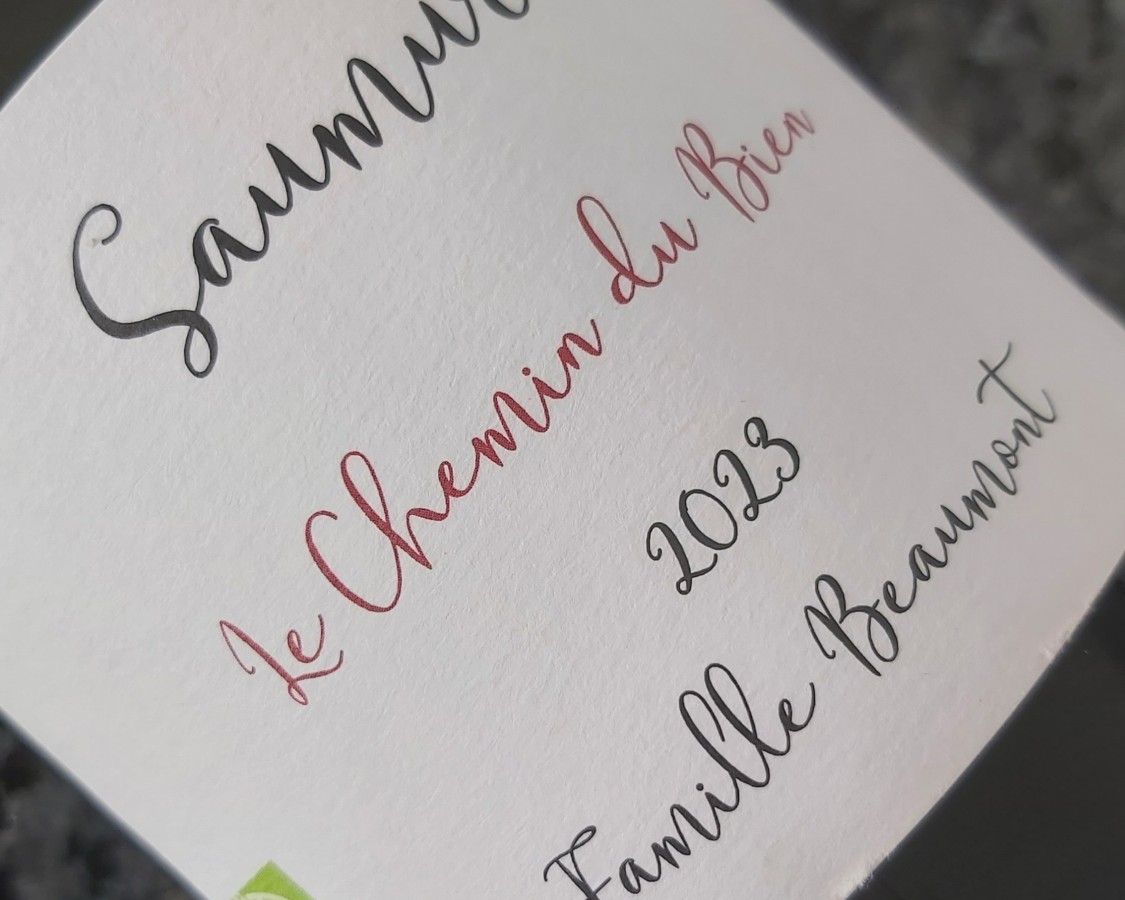 Saumur
Le Chemin du Bien
2023
Famille Beaumont